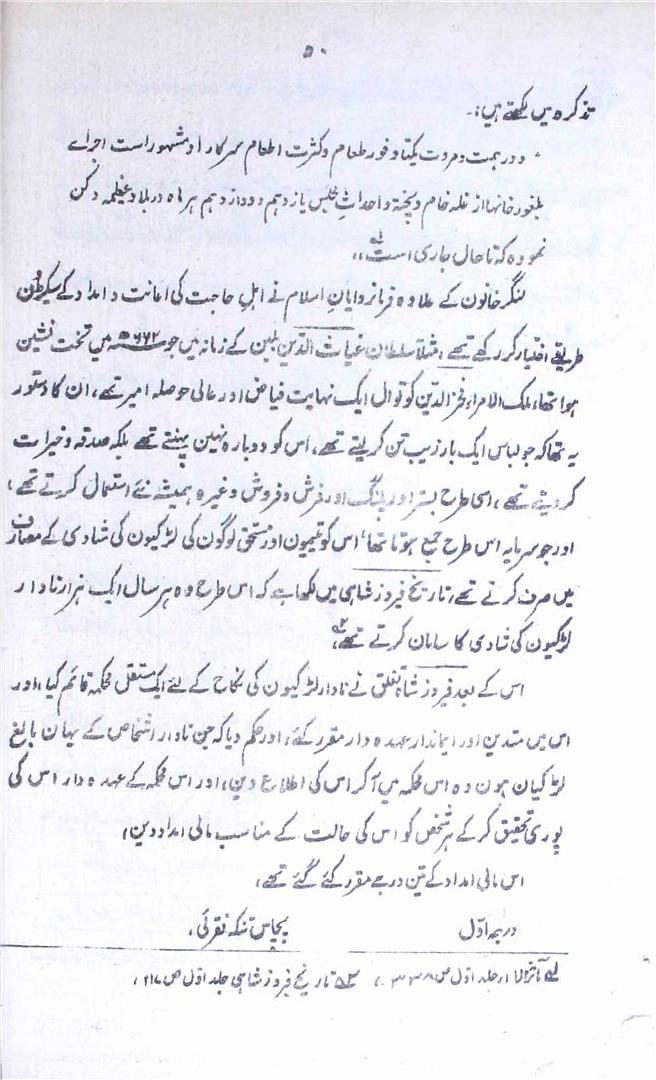 ۵۰
تذکرہ میں لکھتے ہیں:۔
، ودر ہمت و مروت یکتا و فور طعام و کثرت اطعام سرکار او مشہور است اجراے
بلغور خانہا از غلہ خام و پختہ و احداثِ مجلس یازدہم و دوازدہم ہر ماہ در بلاد عظیمہ دکن
نمودہ کہ تا حال جاری است لہ،،
لنگر خانون کے علاوہ فرمانروایانِ اسلام نے اہلِ حاجت کی اعانت و امداد کے سیکڑوں
طریقے اختیار کر رکھے تھے، مثلاً سلطان غیاث الدین بلبن کے زمانہ میں جو ۶۶۲ھ میں تخت نشین
ہوا تھا، ملک الامراء فخر الدین کوتوال ایک نہایت فیاض اور عالی حوصلہ امیر تھے، ان کا دستور
یہ تھا کہ جو لباس ایک بار زیب تن کر لیتے تھے، اس کو دوبارہ نہین پہنتے تھے بلکہ صدقہ و خیرات
کر دیتے تھے، اسی طرح بستر اور پلنگ اور فرش و فروش وغیرہ ہمیشہ نئے استعمال کرتے تھے،
اور جو سرمایہ اس طرح جمع ہوتا تھا، اس کو یتیمون اور مستحق لوگون کی لڑکیون کی شادی کے مصارف
میں صرف کرتے تھے، تاریخ فیروز شاہی میں لکھا ہے کہ اس طرح وہ ہر سال ایک ہزار نادار
لڑکیون کی شادی کا سامان کرتے تھے ۲ہ،
اس کے بعد فیروز شاہ تغلق نے نادار لڑکیون کی نکاح کے لئے ایک مستقل محکمہ قائم کیا، اور
اس میں متدین اور ایماندار عہدہ دار مقرر کئے، اور حکم دیا کہ جن نادار اشخاص کے یہان بالغ
لڑکیان ہون وہ اس محکمہ میں آکر اس کی اطلاع دین، اور اس محکمہ کے عہدہ دار اس کی
پوری تحقیق کرکے ہر شخص کو اس کی حالت کے مناسب مالی امداد دین،
اس مالی امداد کے تین درجے مقرر کئے گئے تھے،
درجہ اوّل پچاس تنکہ نقرئی،
لہ مآثر الامرا جلد اوّل ص ۳۳۸، ۲ہ تاریخ فیروز شاہی جلد اوّل ص ۲۱۷،